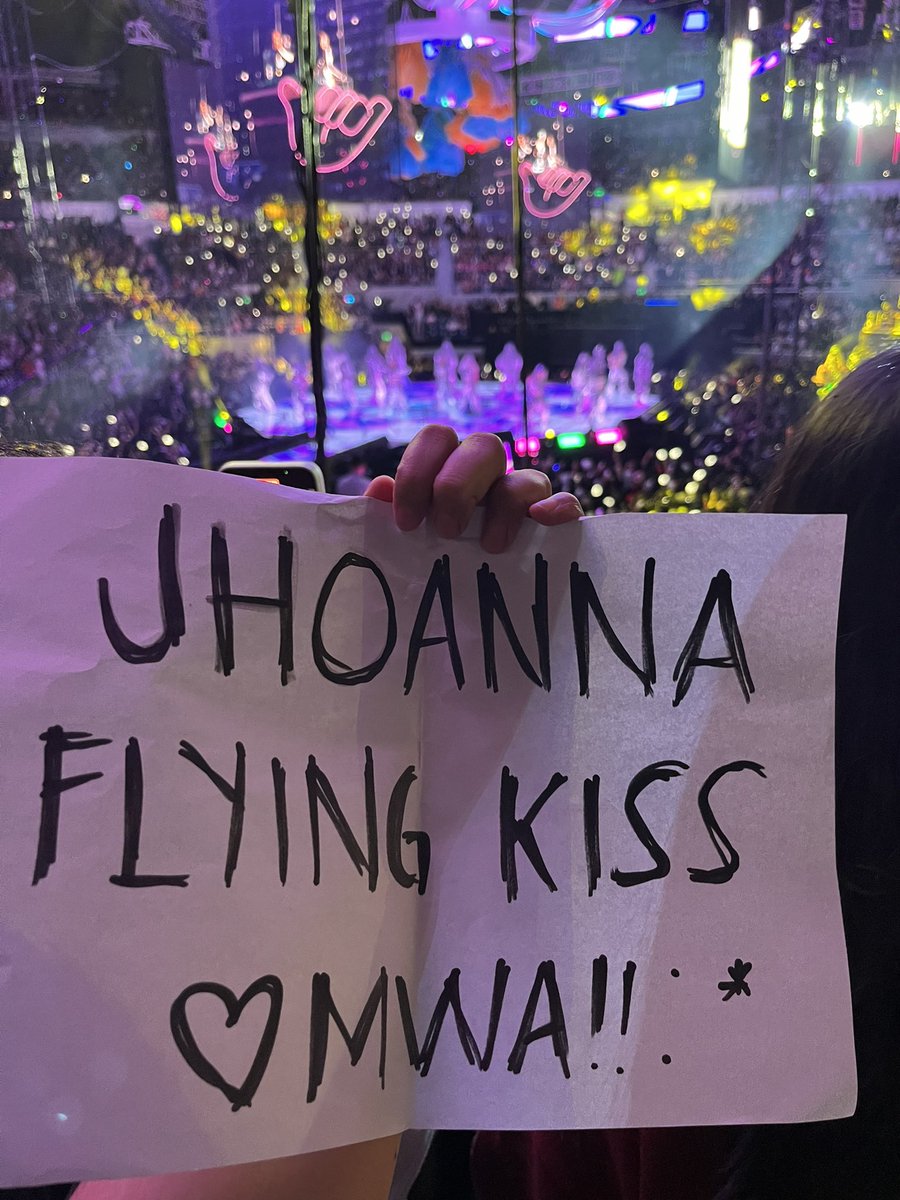 JHOANNA
FLYING KISS
♡MWA!! :*